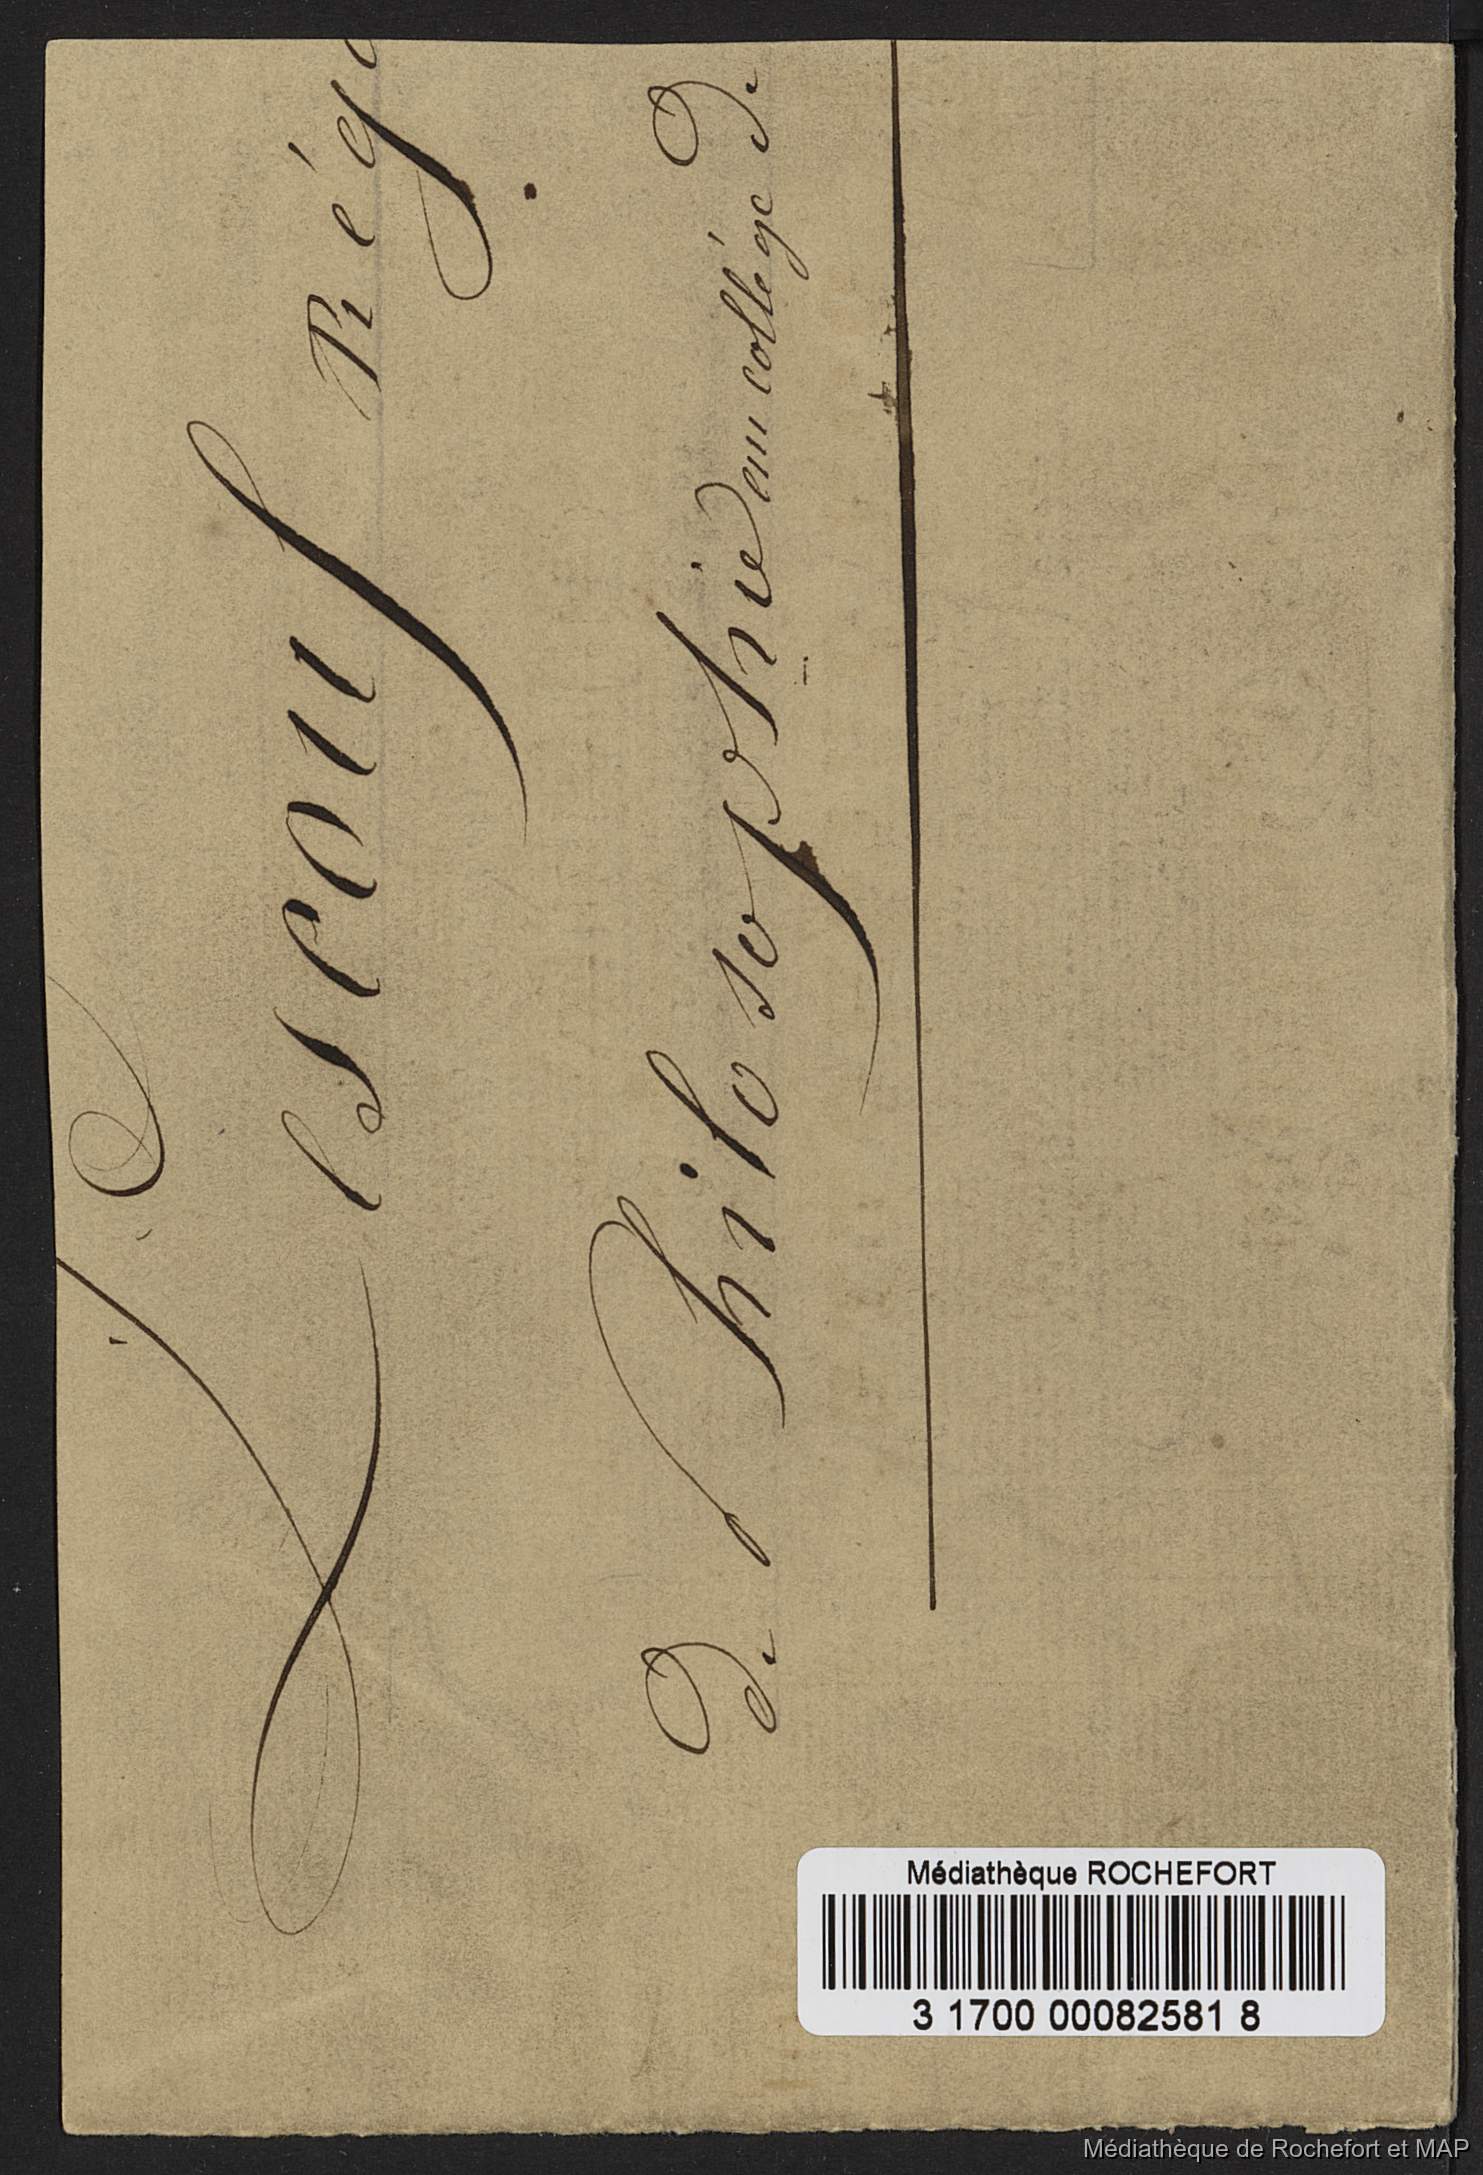 Lescouf Rég
de Philosophie au collége de
Médiathèque ROCHEFORT
3 1700 00082581 8
Médiathèque de Rochefort et MAP